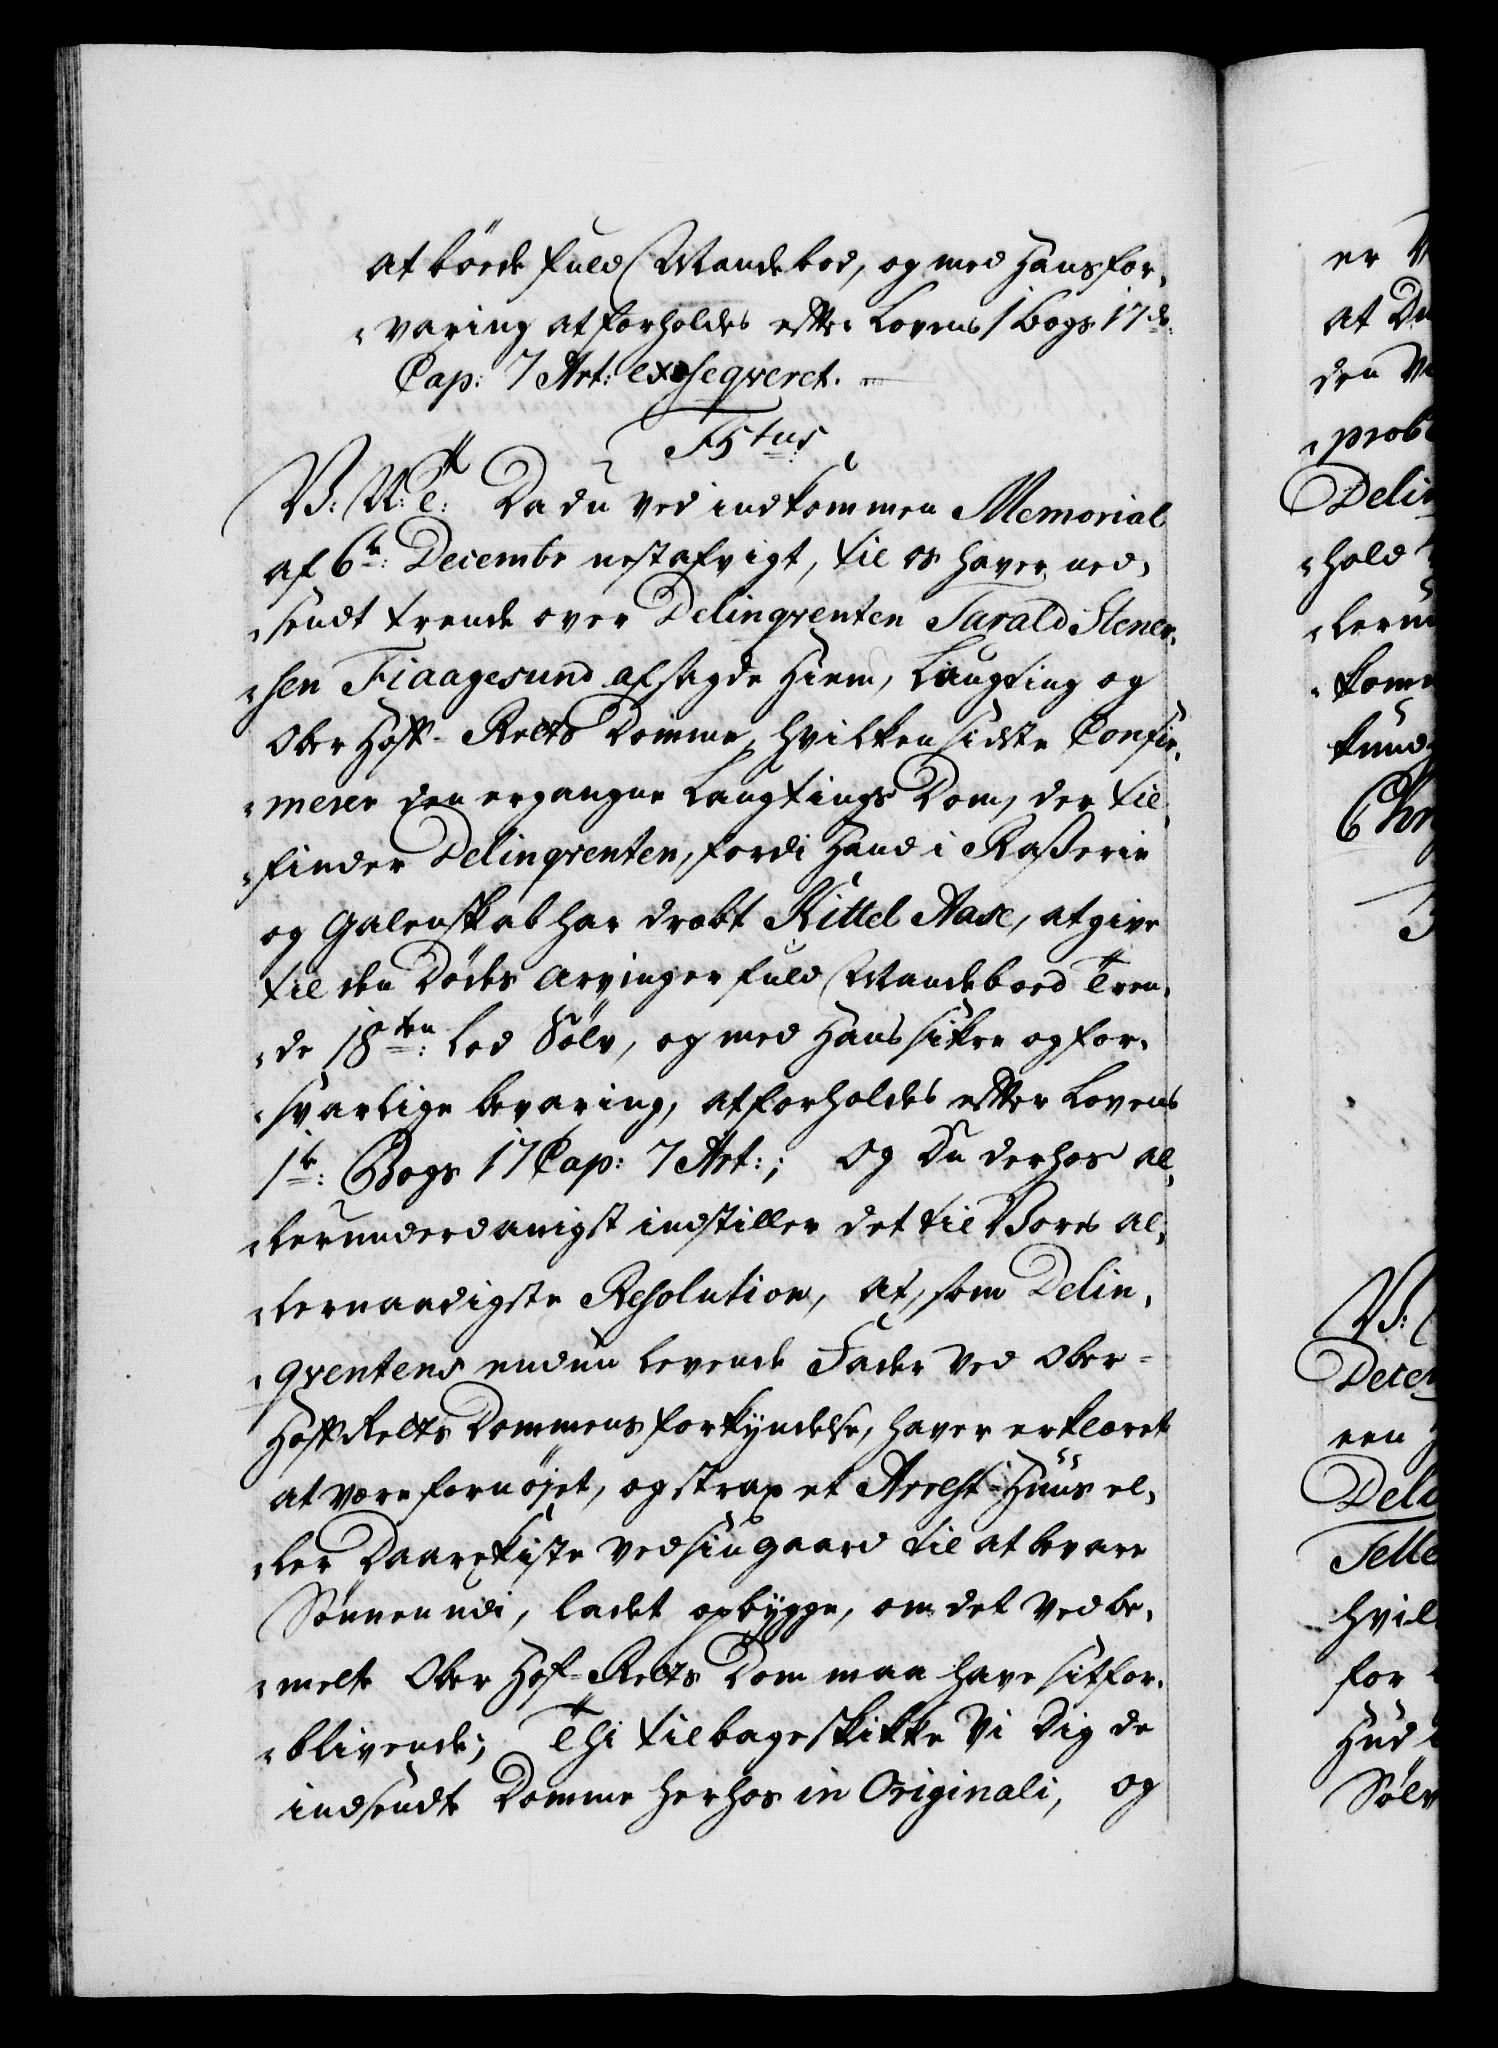 at böede fuld Mandebod, og med Hans for-
varing at forholdes efter Lovens 1 Bogs 17de
Cap: 7 Art: exseqveret.
F5tus
V: U: T: Da du ved indkommen Memorial
af 6te: Decembr nestafvigt, til os haver ned-
sendt trende over Delinqventen Tarald Stener-
sen Fiaagesund afsagde Hiem, Laugting og
Ober Hoff-Rets Domme, hvilken sidste Confir-
merer den ergangne Laugtings Dom, der til-
finder Delinqventen, fordi Hand i Raßerie
og Galenskab har dræbt Kittel Aase, at give
til den Dødes Arvinger fuld Mandeboed Tren-
de 18ten: Lod Sølv, og med Hans sikre og for-
svarlige bevaring, at forholdes efter Lovens
1te: Bogs 17 Cap: 7 Art:; Og Du derhos al-
lerunderdanigst indstiller det til Vores al-
lernaadigste Resolution, at, som Delin-
qventens endnu levende Fader ved Ober-
Hoff Rets Dommens forkyndelse, haver erklæret
at være fornøjet, og strax et Arrest-Huus el-
ler Daarekiste ved sin gaard til at bevare
Sønnen udi, ladet opbygge, om det ved be-
melte Ober Hof-Rets Dom maa have sit for-
blivende; Thi tilbageskikke Vi Dig de
indsendte Domme herhos in Originali, og